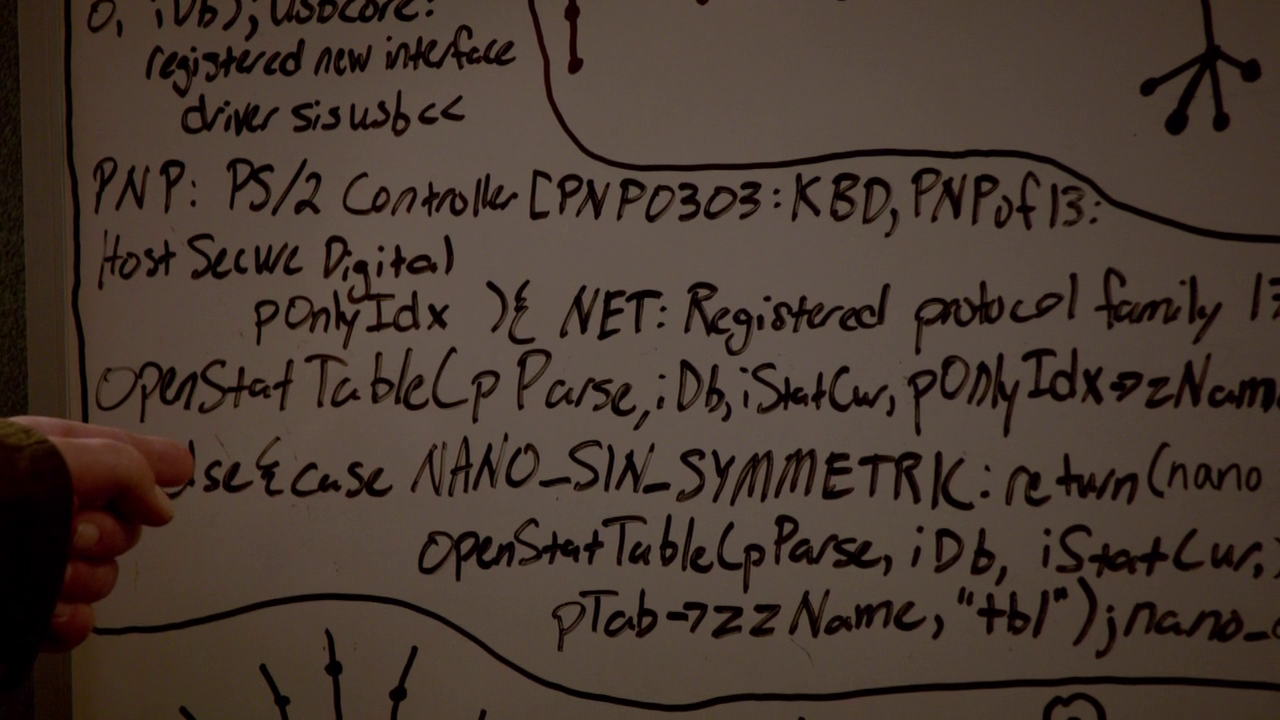 0, iDb); usbcore:
registered new interface
driver sisusb <<
PNP: PS/2 Controller [PNP0303:KBD, PNPof13:
Host Secure Digital
pOnlyIdx ){ NET: Registered protocol family 17
openStatTable(pParse, iDb, iStatCur, pOnlyIdx->zNam
lse{ case NANO_SIN_SYMMETRIC: return (nano
openStatTable(pParse, iDb, iStatCur,
pTab->zzName, "tbl"); nano_